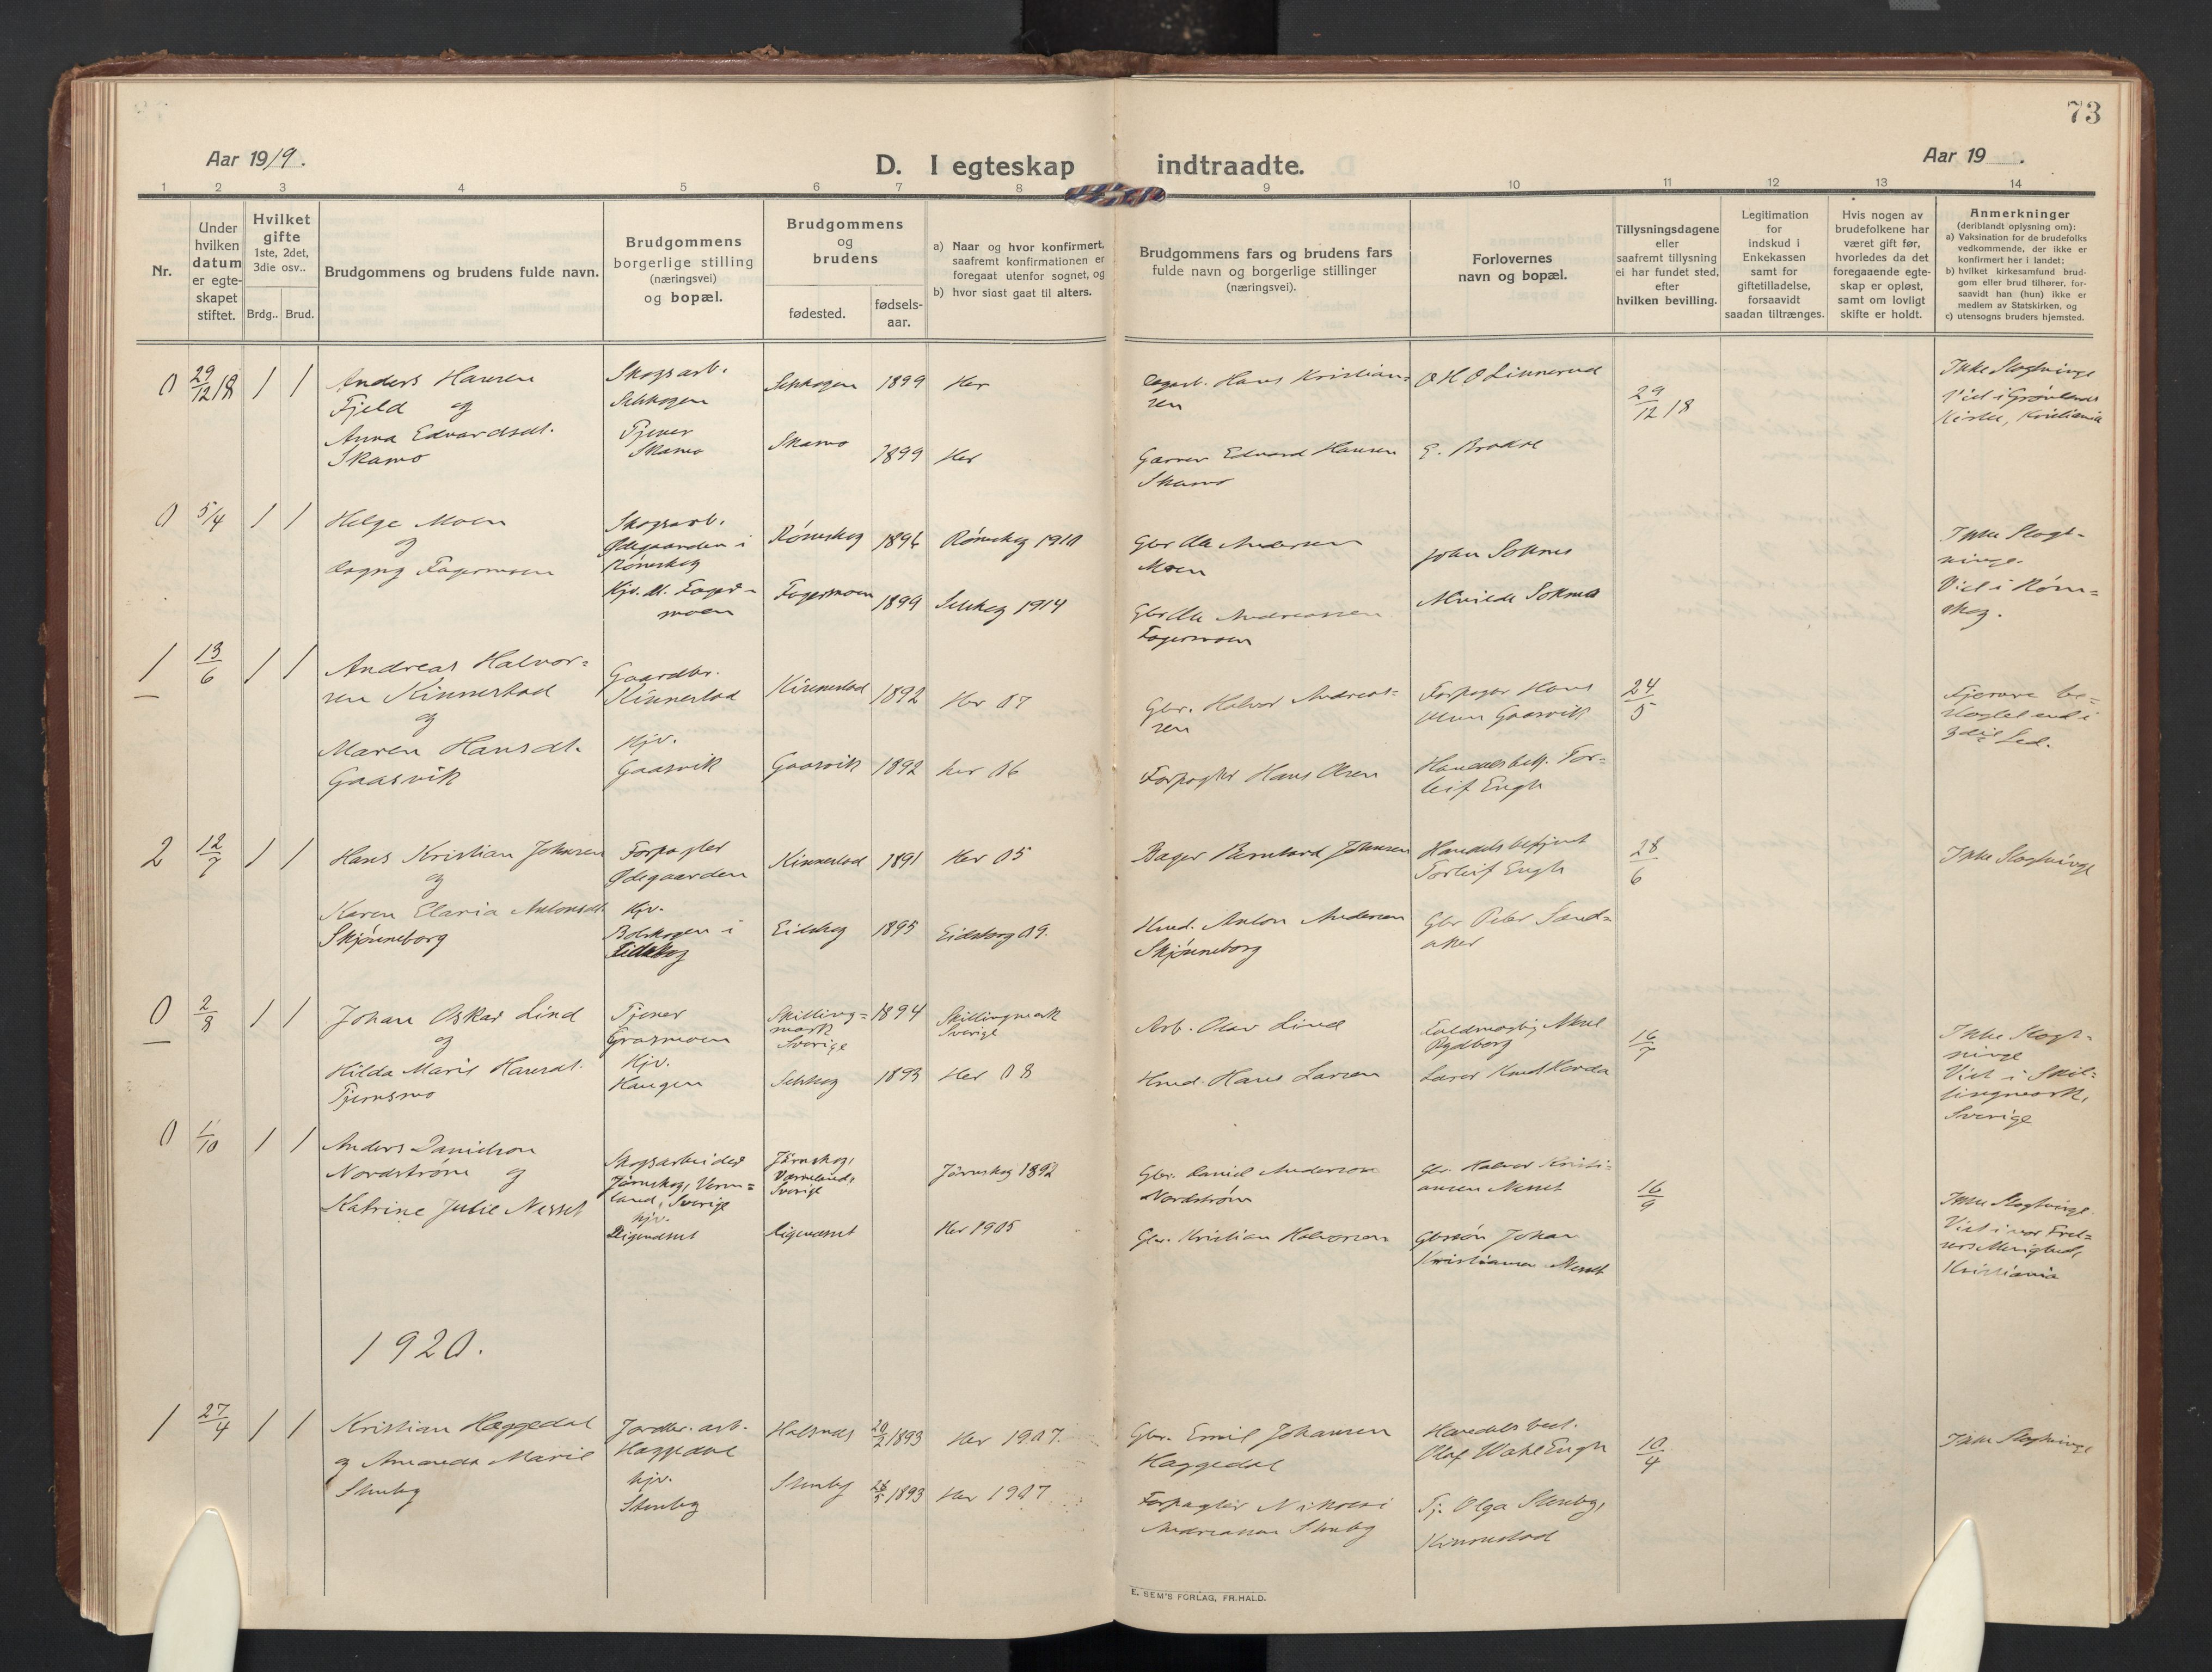 73
Aar 1919.
D. I egteskap indtraadte.
Aar 19   .
1 2 3 4 5 6 7 8 9 10 11 12 13 14
Nr.
Under
hvilken
datum
er egte-
skapet
stiftet.
Hvilket
gifte
1ste, 2det,
3die osv..
Brdg.. Brud.
Brudgommens og brudens fulde navn.
Brudgommens
borgerlige stilling
(næringsvei)
og bopæl.
Brudgommens
og
brudens
fødested.
fødsels-
aar.
a) Naar og hvor konfirmert,
saafremt konfirmationen er
foregaat utenfor sognet, og
b) hvor sidst gaat til alters.
Brudgommens fars og brudens fars
fulde navn og borgerlige stillinger
(næringsvei).
Forlovernes
navn og bopæl.
Tillysningsdagene
eller
saafremt tillysning
ei har fundet sted,
efter
hvilken bevilling.
Legitimation
for
indskud i
Enkekassen
samt for
giftetilladelse,
forsaavidt
saadan tiltrænges.
Hvis nogen av
brudefolkene har
været gift før,
hvorledes da det
foregaaende egte-
skap er opløst,
samt om lovligt
skifte er holdt.
Anmerkninger
(deriblandt oplysning om):
a) Vaksination for de brudefolks
vedkommende, der ikke er
konfirmert her i landet;
b) hvilket kirkesamfund brud-
gom eller brud tilhører, for-
saavidt han (hun) ikke er
medlem av Statskirken, og
c) utensogns bruders hjemsted.
0 29/12 18 1 1
Anders Hansen
Fjeld og
Anna Edvardsdt.
Skamo
Skogsarb.
Setskogen
Tjener
Skamo
Setskogen 1899 Her
Skamo 1899 Her
Hans Kristian-
sen
Edvard Hansen
Skamo
O H O Linnerud
G. Brakke
29/12 18
Ikke Slegtninge
Viet i Grønlands
Kirke, Kristiania
0 5/4 1 1
Helge Moen
og
Dagny Fagermoen
Skogsarb.
Ødegaarden i
Rømskog
Hjv. Fager-
moen
Rømskog 1896 Rømskog 1910
Fagermoen 1899 Setskog 1914
Gbr Ole Andersen
Moen
Gbr Ole Andreassen
Fagermoen
Johan Soknes
Soknes
Ikke Slegt-
ninge.
Viet i Røm-
skog.
1 13/6 1 1
Andreas Halvor-
sen Kinnestad
og
Maren Hansdt.
Gaasvik
Gaardbr.
Kinnestad
Hjv.
Gaasvik
Kinnestad 1892 Her 07
Gaasvik 1892 her 06
Gbr. Halvor Andreas-
sen
Forpagter Hans Olsen
Forpagter Hans
Olsen Gaasvik
Handelsbetj. Tor-
leif Engh
24/5
Fjerne be-
slegtet end i
3die Led.
2 12/7 1 1
Hans Kristian Johnsen
og
Karen Elaria Antonsdt.
Skjønneborg
Forpagter
Ødegaarden
Hjv.
Bolskogen i
Eidskog
Kinnestad 1891 Her 05
Eidskog 1895 Eidskog 09.
Bager Bernhard Johnsen
Hmd. Anton Andersen
Skjønneborg
Handelsbetjent
Torleif Engh
Gbr Peter Sand-
aker
28/6
Ikke Slegtninge
0 2/8 1 1
Johan Oskar Lind
og
Hilda Marie Hansdt.
Tjernsmo
Tjener
Grasmoen
Hjv.
Haugen
Skilling-
mark
Sverige
1894
Skillingmark
Sverige
Setskog 1893 Her 08
Arb. Olav Lind
Hmd. Hans Larsen
Fuldmægtig Aksel
Rydberg
Lærer Knut Horda
16/7
Ikke Slegt-
ninge
Viet i Skil-
lingmark,
Sverige
0 1/10 1 1
Anders Danielson
Nordstrøm og
Katrine Julie Nesset
Skogsarbeider
Järnskog, Verm-
land, Sverige
hjv.
Digendset
Järnskog,
Värmland,
Sverige
Järnskog 1892
Her 1905
Gbr. Daniel Anderson
Nordstrøm
Gbr. Kristian Halvorsen
Gbr. Halvor Kristi-
ansen Nesset
Gbrsøn Johan
Kristiansen Nesset
16/9
Ikke Slegtninge.
Viet i vor Frel-
sers Menighed,
Kristiania
1920.
1 27/4 1 1
Kristian Haggedal
og Amanda Marie
Stenby
Jordbr. arb.
Haggedal
hjv.
Stenby
Halsnes 20/2 1893 Her 1907.
Stenby 1893 Her 1907
Gbr. Emil Johansen
Haggedal
Forpagter Nikolai
Andreassen Stenby
Handelsbest.
Olaf Wahl Engh
Tj. Olga Stenby,
Kinnestad
10/4
Ikke Slegtninge
E. SEM'S FORLAG, FR.HALD.